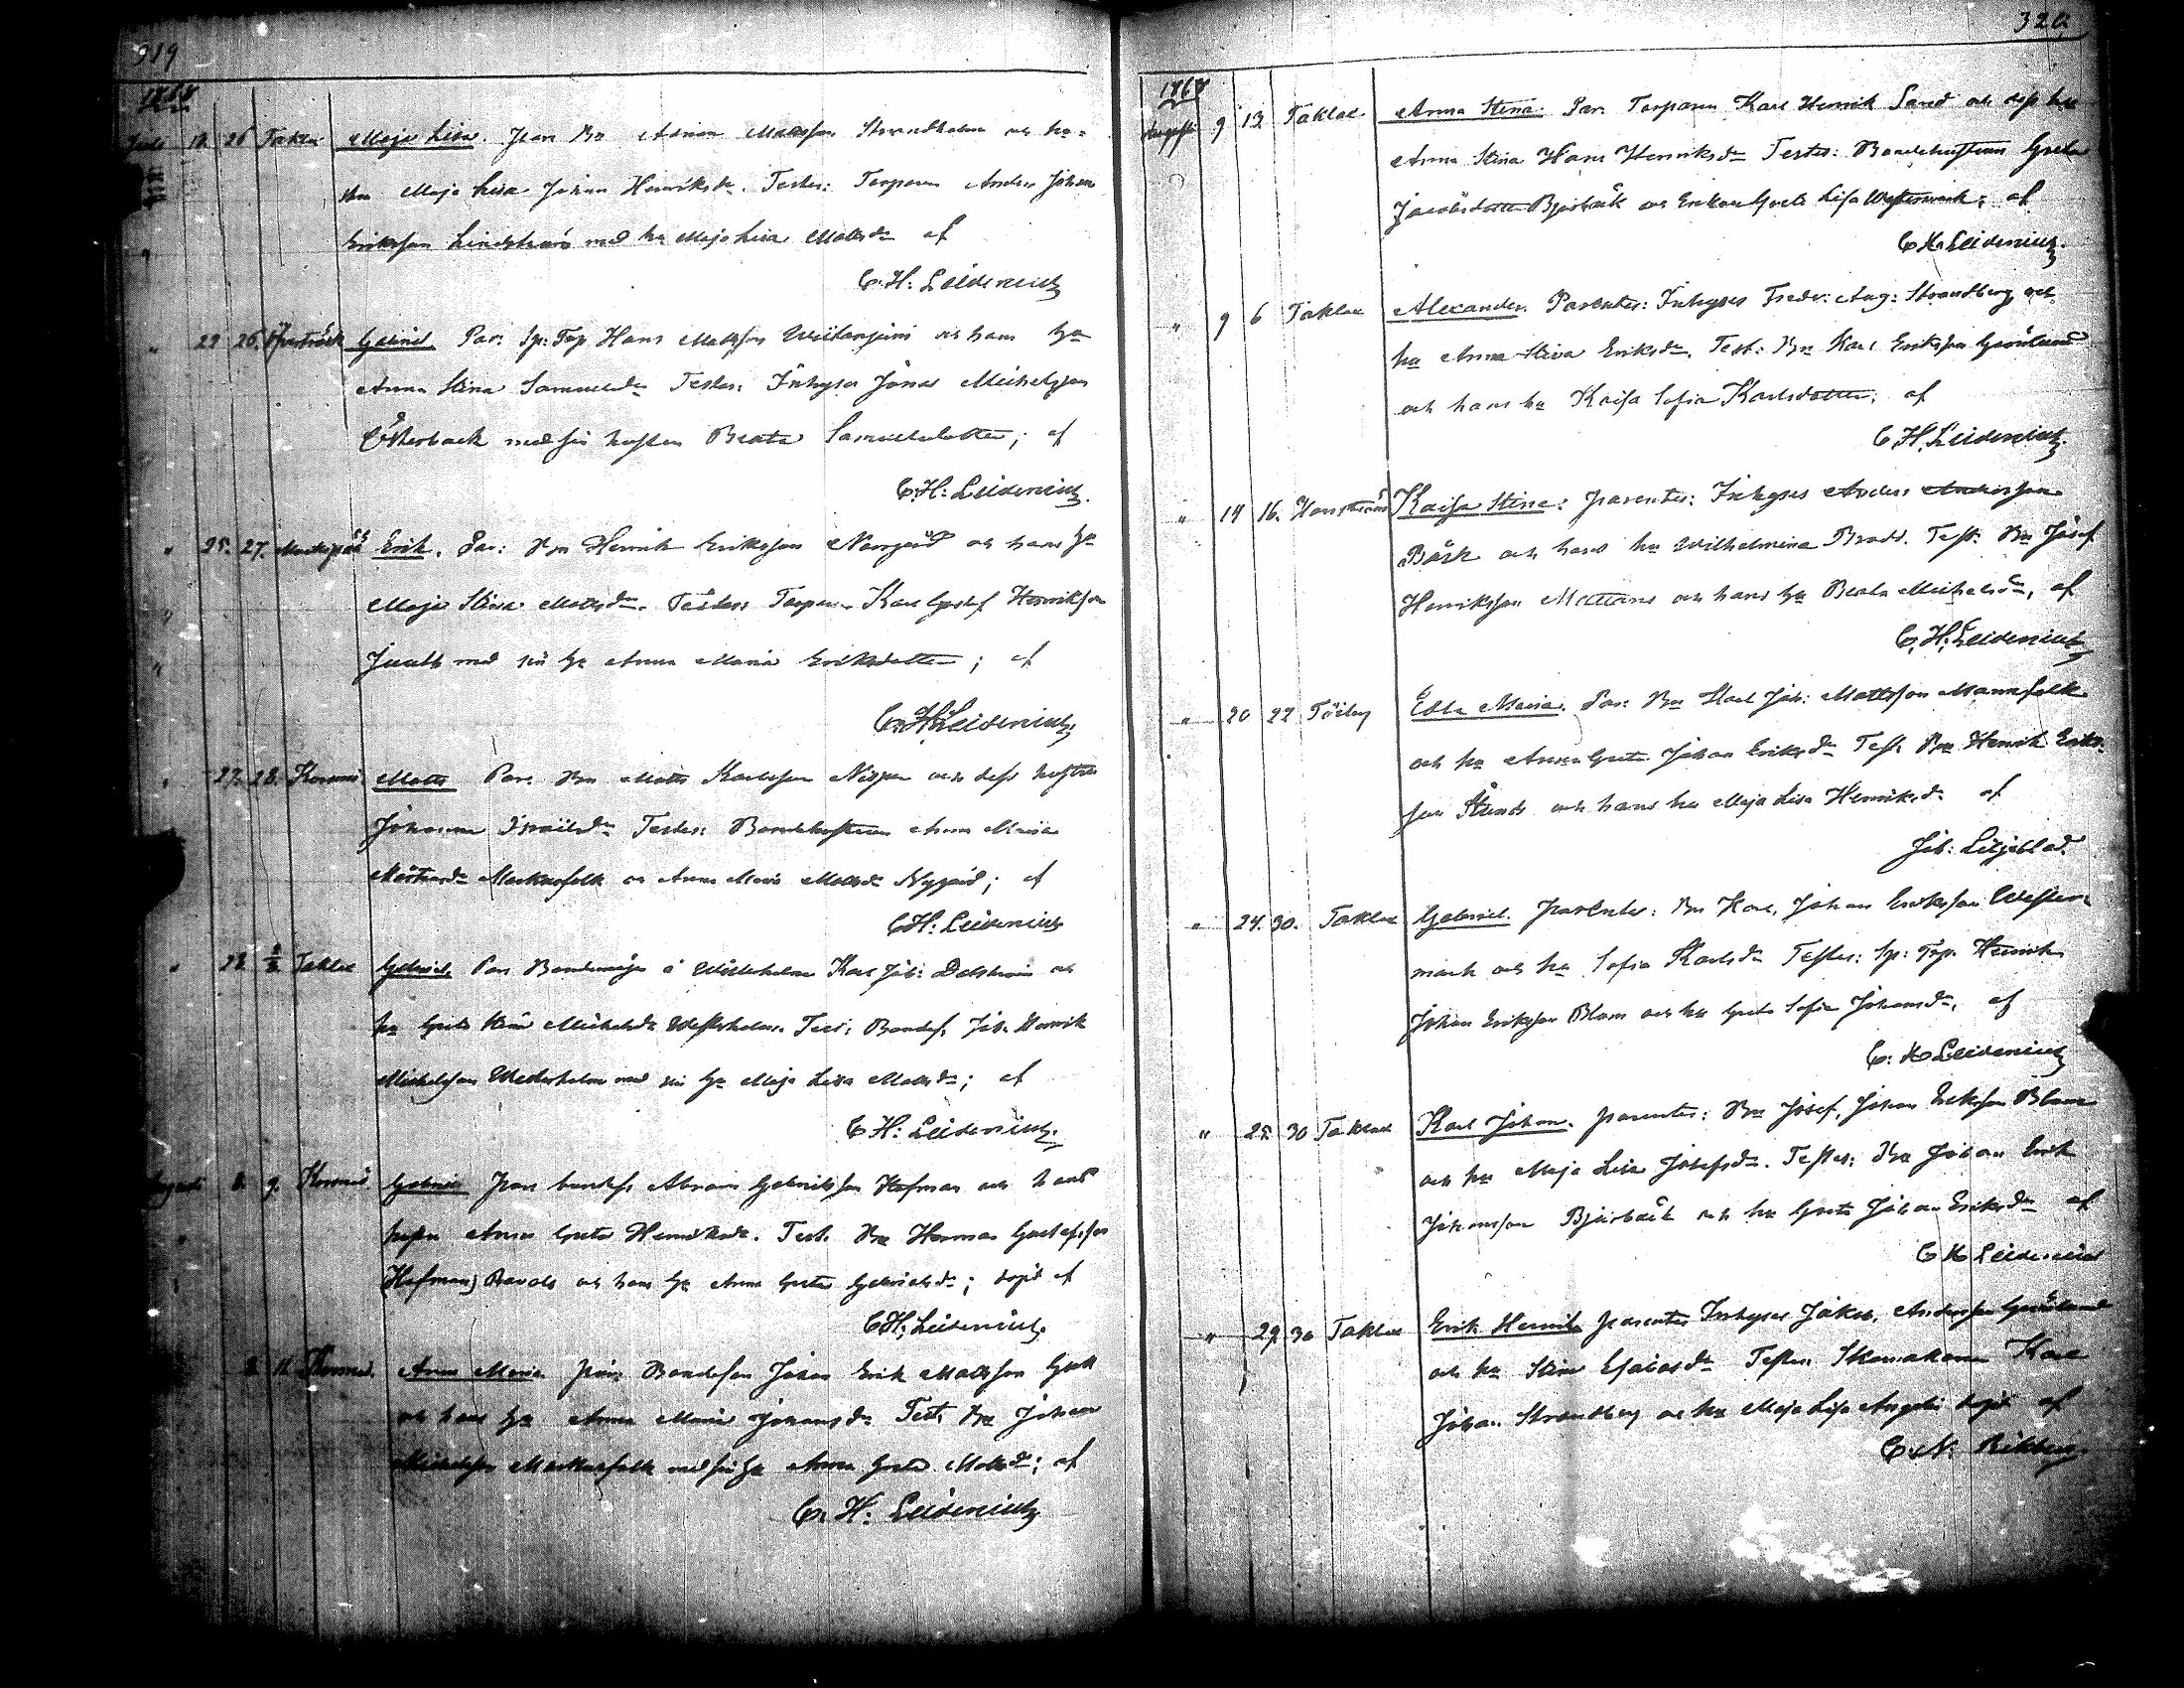 319
1868
Juli 18 26 Taklax Maja Lisa. Par. Bn Adrian Mattsson Strandholm och hu-
stru Maja Lisa Johan Henriksdr. Testes: Torparen Anders Johan
Eriksson Lindström med hu Maja Lisa Mattsdr af
C. H: Leidenius
" 22 26. Öfverträsk Gabriel. Par: Sp: Torp Hans Mattsson och hans hu
Anna Stina Samuelsdr Testes: Inhyses Jonas Michelsson
Österback med sin hustru Beata Samuelsdotter; af
C. H: Leidenius.
" 25. 27. Erik. Par: Bn Henrik Eriksson Norrgård och hans hu
Maja Stina Mattsdr. Testes: Torparen Karl Gustaf Henriksson
Juuth med sin hu Anna Maria Eriksdotter; af
C. H. Leidenius.
" 27. 28. Korsnäs Matts Par. Bn Matts Karlsson Nissen och dess hustru
Johanna Israelsdr Testes: Bondehustrun Anna Maria
Mårtensdr Markusfolk och Anna Maria Mattsdr Nygård; af
C H: Leidenius
" 28. 2/8 Taklax Gabriel. Par. Bondemåg å Westerholm Karl Joh: Dalström och
hu Greta Stina Michelsdr Westerholm. Test: Bondes. Joh. Henrik
Michelsson Westerholm med sin hu Maja Lisa Mattsdr; af
C H: Leidenius.
Augusti 8. 9. Korsnäs Gabriel Par bondeson Abram Gabrielsson Hofman och hans
hustru Anna Greta Henriksdr. Test. Bn Herman Gustafsson
(Hofman) och hans hu Anna Greta Gabrielsdr; döpt af
C H: Leidenius.
8. 11. Korsnäs. Anna Maria Par: Bondeson Johan Erik Mattsson
och hans hu Anna Maria Johansdr Test. Bn Johan
Michelsson Markusfolk med sin hu Anna Greta Mattsdr; af
C. H: Leidenius
320.
1868
Augusti 9 13 Taklax Anna Stina. Par. Torparen Karl Henrik Sand och dess hu
Anna Stina Hans Henriksdr Testes: Bondehustrun Greta
Jacobsdotter Bjurbäck och Enkan Greta Lisa Westermark; af
C H. Leidenius.
" 9 6 Taklax Alexander. Parentes: Inhyses Fredr: Aug: Strandberg och
hu Anna Stina Eriksdr. Test: Bn Karl Eriksson Grönlund
och hans hu Kajsa Sofia Karlsdotter, af
C H. Leidenius.
" 14 16. Harrström Kajsa Stina: parentes: Inhyses Anders Andersson
Bäck och hans hu Wilhelmina Brodd. Test: Bn Josef
Henriksson Mattans och hans hu Beata Michelsdr, af
C. H: Leidenius
" 20 22 Töjby Edla Maria. Par: Bn Karl Joh: Mattsson Mannfolk
och hu Anna Greta Johan Eriksdr Test: Bn Henrik Eriks-
son Strands och hans hu Maja Lisa Henriksdr af
Joh: Liljeblad.
" 24. 30. Taklax Gabriel. parentes: Bn Karl Johan Eriksson Wester-
mark och hu Sofia Karlsdr Testes: Sp: Torp. Henrik
Johan Eriksson Blom och hu Greta Sofia Johansdr, af
C: H Leidenius
" 25 30 Taklax Karl Johan. parentes: Bn Josef Johan Eriksson Blom
och hu Maja Lisa Josefsdr. Testes: Bn Johan Erik
Johansson Bjurbäck och hu Greta Johan Eriksdr af
C H Leidenius
" 29 30 Taklax Erik Henrik parentes Inhyses Jakob Andersson Grönlund
och hu Stina Esaiasdr Testes: Skomakaren Karl
Johan Strandberg och hu Maja Lisa döpt af
C. N.